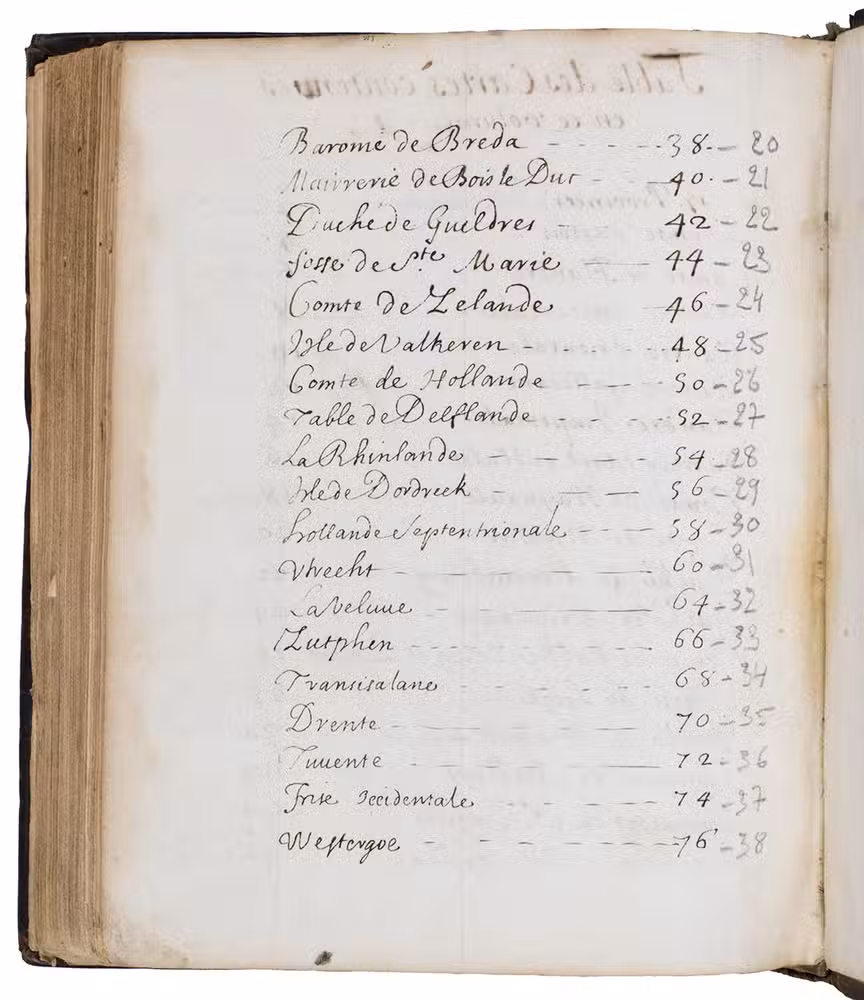 Baronie de Breda - - - - - 38. - 20
Mairrerie de Bois le Duc - - 40. - 21
Duché de Gueldres - - 42 - 22
fosse de Ste Marie - 44 - 23
Comte de Zelande - 46 - 24
Isle de Valkeren - - - - - 48 - 25
Comte de Hollande - - - 50 - 26
Table de Delflande - - - 52 - 27
La Rhinlande - - - - 54 - 28
Isle de Dordreck - - - 56 - 29
hollande Septentrionale - - - - 58 - 30
Vtrecht - - - - 60 - 31
La Veluue - - - 64 - 32
Zutphen - - - - - - 66 - 33
Transisalane - - - - - 68 - 34
Drente - - - - 70 - 35
Tuuente - - - - - 72 - 36
Frise occidentale - - - - 74 - 37
Westergoe - - - - - 76 - 38